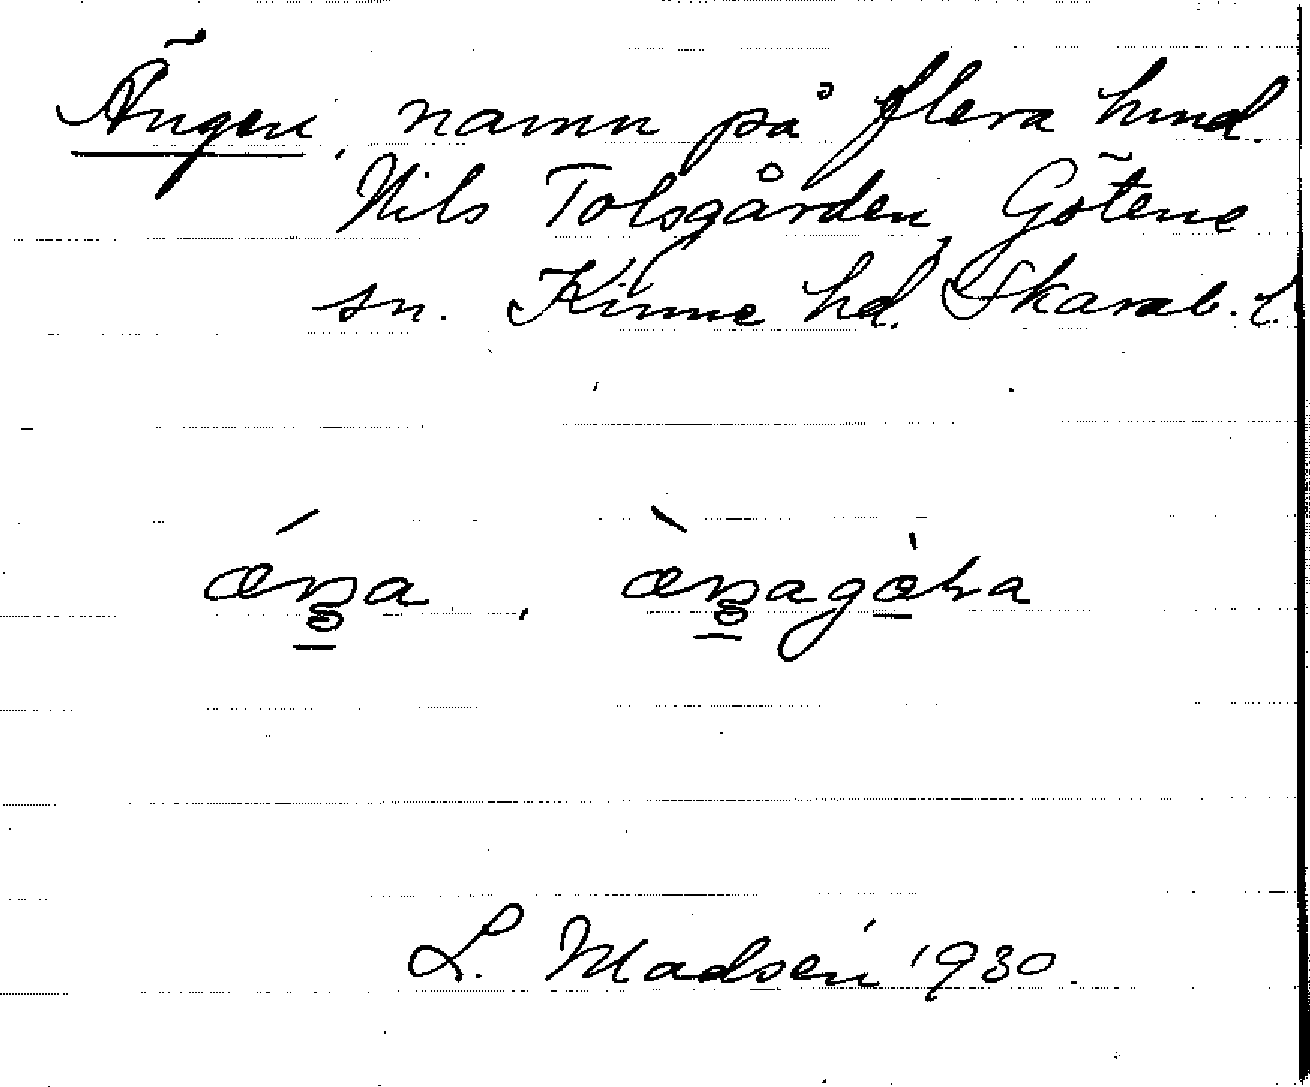 Ängen, namn på flera hmd.
Nils Tolsgården, Götene
sn. Kinne hd. Skarab. l.
L. Madsén 1930.